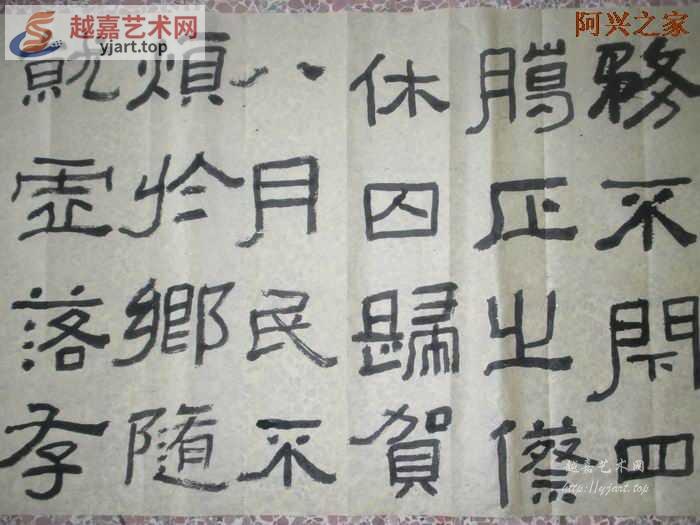 越嘉艺术网
yjart.top
阿兴之家
務不閇四
臈正之傺
休囚歸賀
八月民不
煩於鄉隨
就虛落存
越嘉艺术网
http://yjart.top